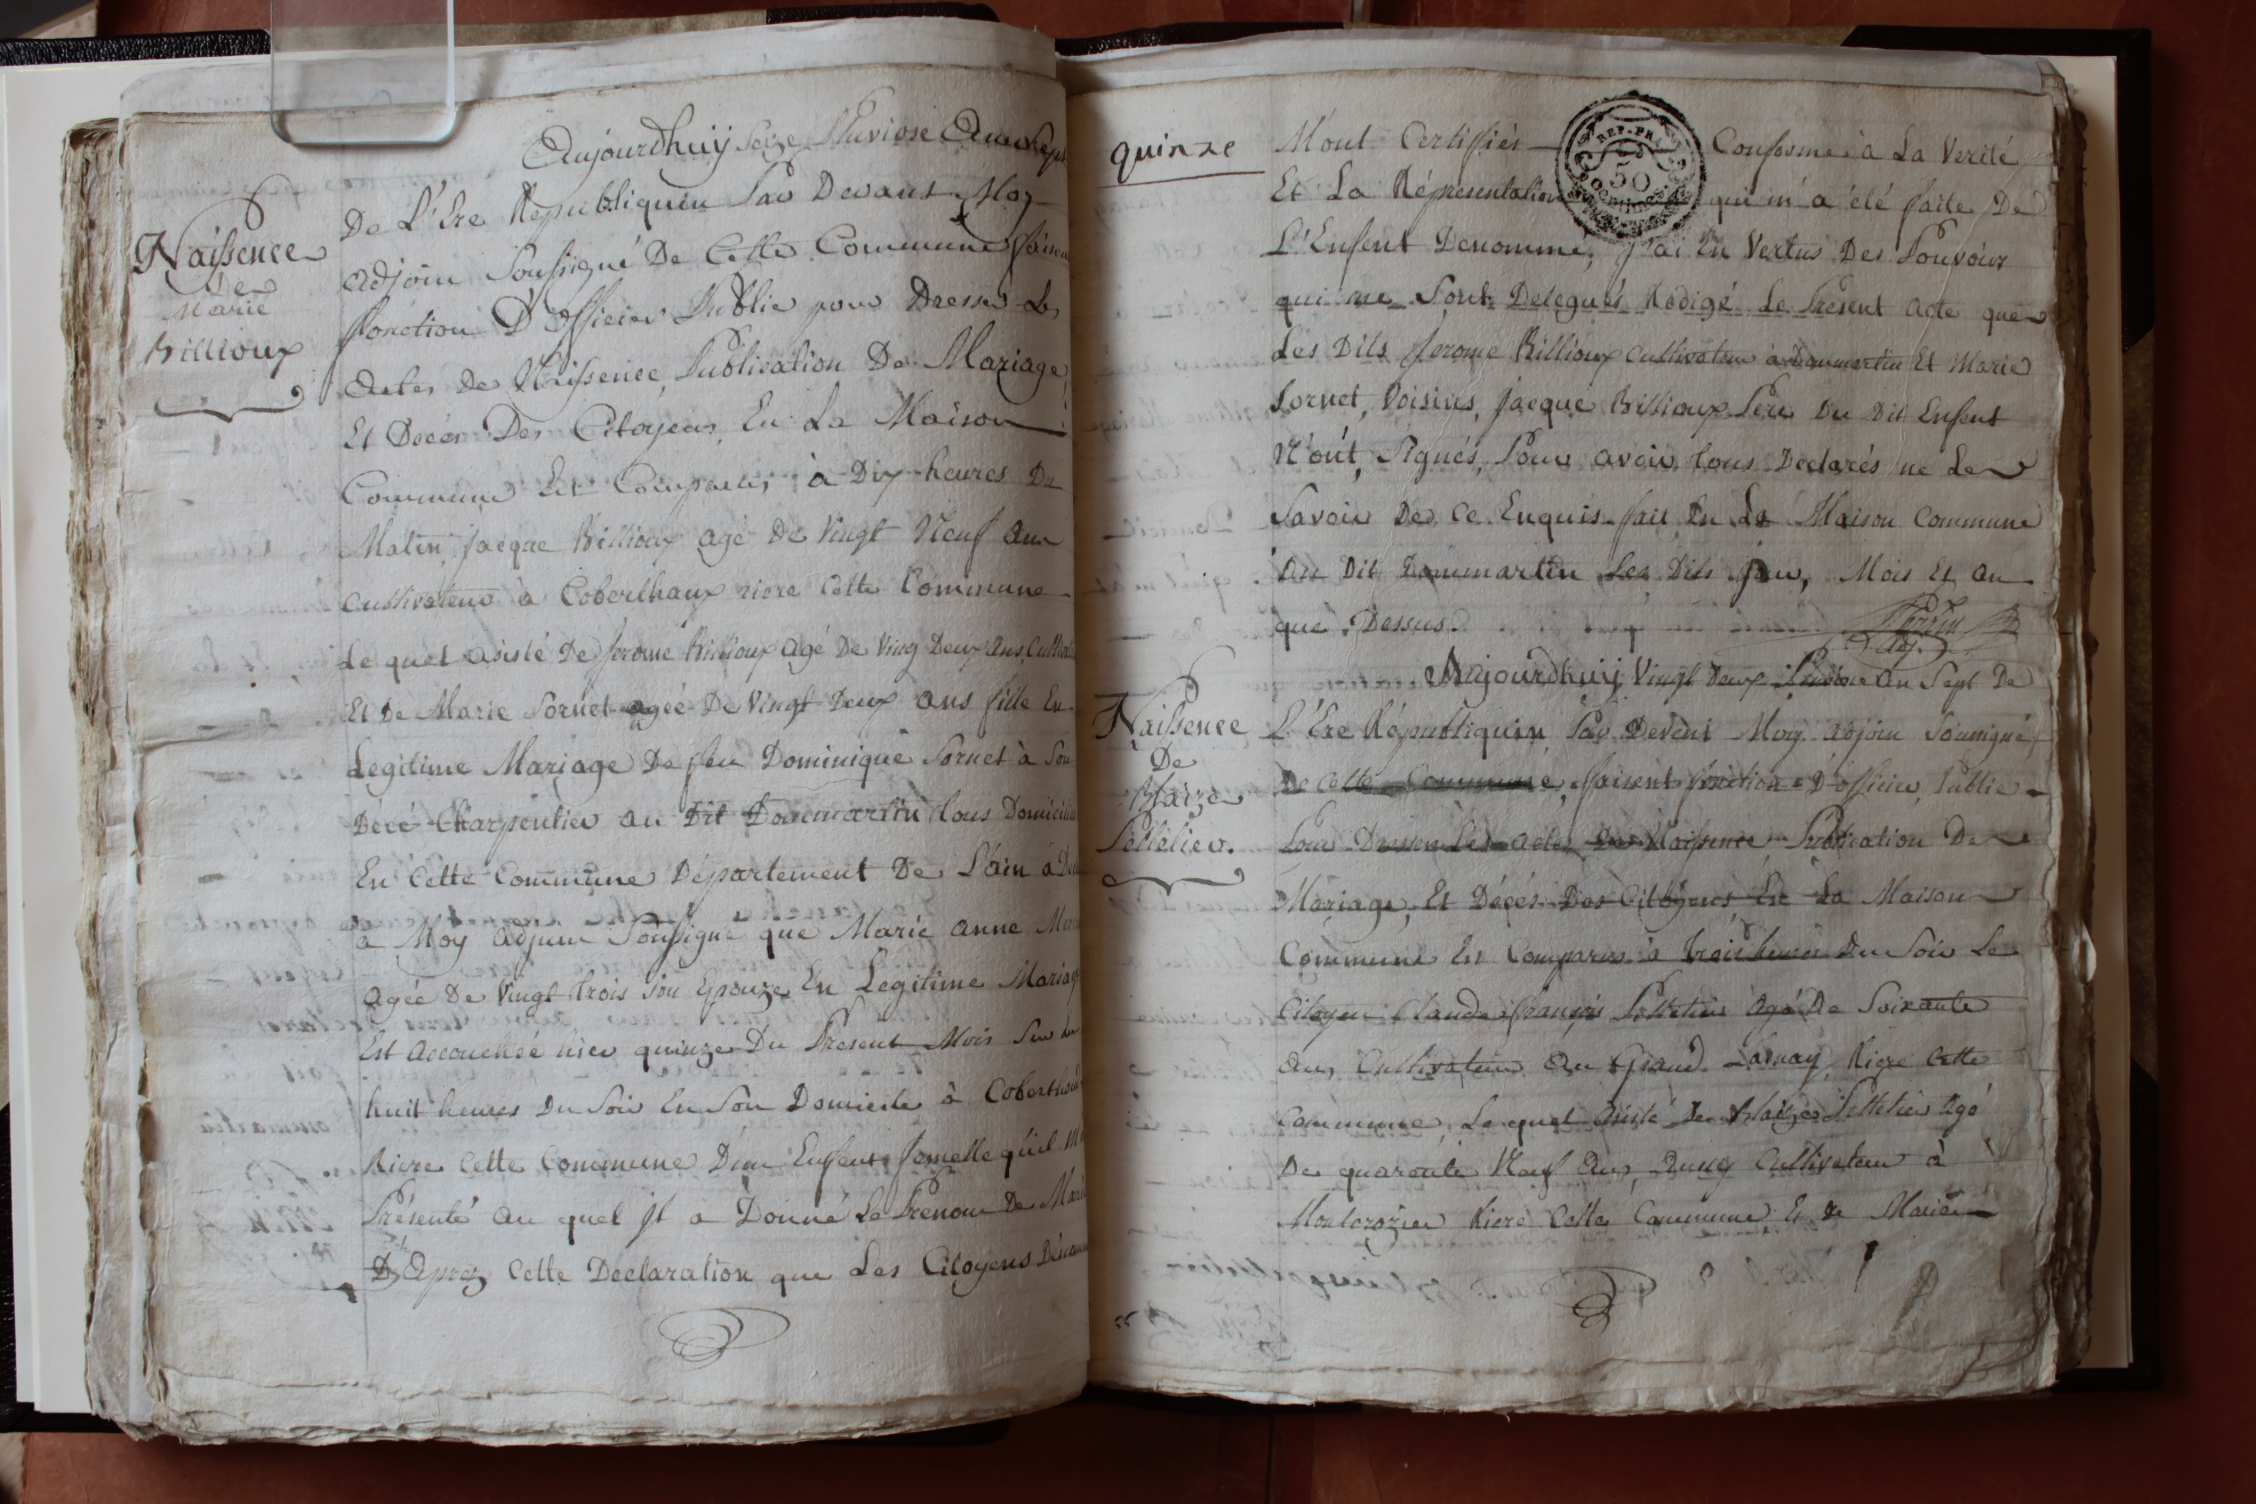 Aujourdhuij Seize Pluviose An Sept
De L'Ere Republiquin Par Devant Moy
adjoin Soussigné De Cette Commune faisent
fonction D'Officier Public pour Dresser Les
Actes De Naissence, Publication De Mariage,
Et Décès Des Citoyens, En La Maison
Commune Est Comparus, à Dix heures Du
Matin, Jacque Billioux agé De Vingt Neuf ans
Cultivateur à Coberthoux riere Cette Commune
Le quel asisté De Jerome Billioux agé De Ving Deux Ans, Cultiv
Et De Marie Sornet agée De Vingt Deux ans fille En
Legitime Mariage De feu Dominique Sornet à Son
Décé Charpentier au Dit Dommartin tous Domicilié
En Cette Commune Département De L'ain à D
à Moy Adjoin Soussigné que Marie anne
agée De Vingt trois Son Epouze En Legitime Mariage
Est accouchée hier quinze Du Present Mois Sur Les
huit heures Du Soir En Son Domicile à Coberthoux
Riere Cette Commune D'un Enfent femelle qu'il m'a
Présenté Au quel Jl a Donné Le Prenom De Marie
D'Aprez Cette Declaration que Les Citoyens
Naissence
De
Marie
Billioux
quinze
M'ont Certiffiér Conforme à La Verité
Et La Répresentation qui m'a été faite De
L'Enfent Denommé, J'ai En Vertus Des Pouvoir
qui me Sont Delegués Rédigé Le Present acte que
Les Dits Jerome Billioux Cultivateur à Dommartin Et Marie
Sornet, Voisins, Jacque Billioux Pere Du Dit Enfent
N'ont, Signés, Pour avoir tous Declarés ne Le
Savoir De Ce Enquis fait En La Maison Commune
Au Dit Dommartin Les Dits Jour, Mois Et an
que Dessus.
Perrin
Adj.
REP. FRA.
50
Aujourdhuij Vingt Deux Pluviose An Sept De
L'Ere Républiquin Par Devent Moy adjoin Sousigné,
De Cette Commune, faisent fonction D'officier Public
Pour Dresser Les Actes De Naissence Publication De
Mariage, Et Décés Des Citoyens En La Maison
Commune Est Comparus à trois heures Du Soir Le
Citoyen Claude françois Pelletier Agé De Soixante
ans Cultivateur Au Grand Riere Cette
Commune, Le quel Asisté De Blaize Pelletier Agé
De quarante Neuf Ans, Cultivateur à
Montcrozier Riere Cette Commune Et De Marie
Naissence
De
Blaize
Pelletier.